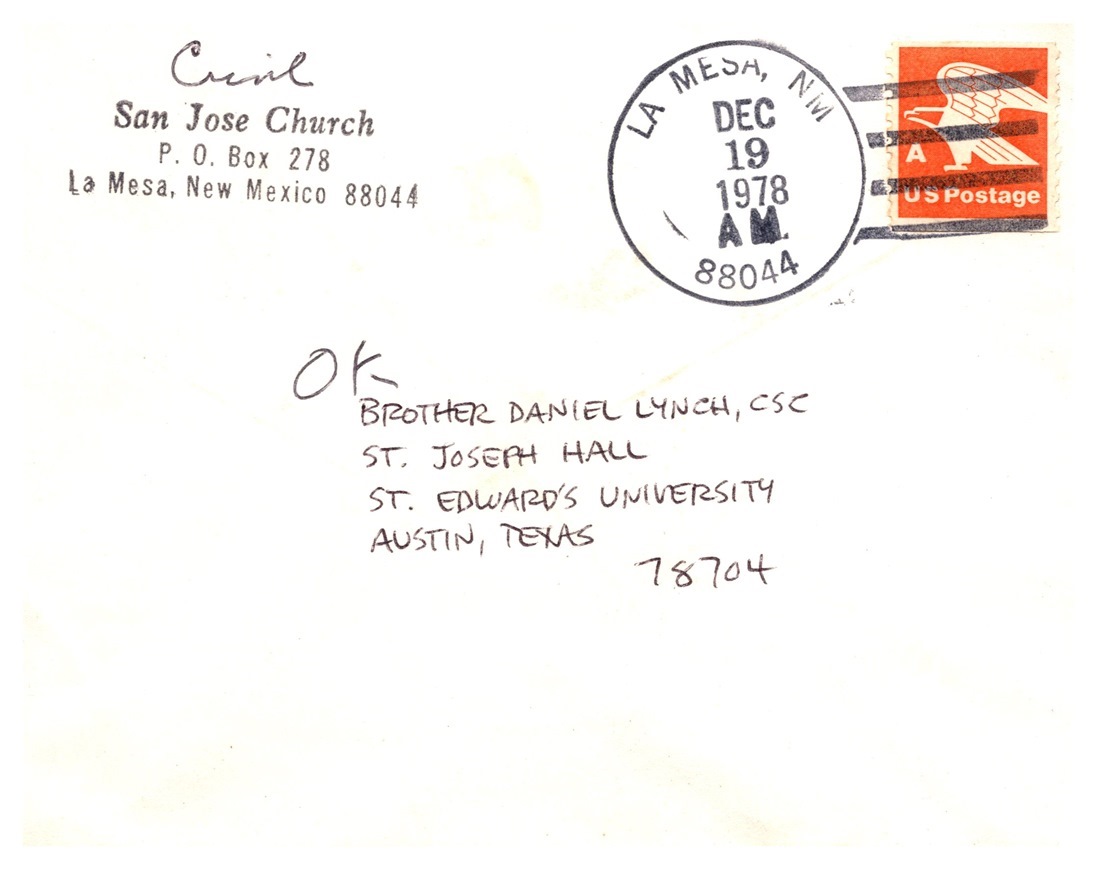 San Jose Church
P. O. Box 278
La Mesa, New Mexico 88044
LA MESA, NM
DEC
19
1978
AM.
88044
A
US Postage
OK
BROTHER DANIEL LYNCH, CSC
ST. JOSEPH HALL
ST. EDWARD'S UNIVERSITY
AUSTIN, TEXAS
78704